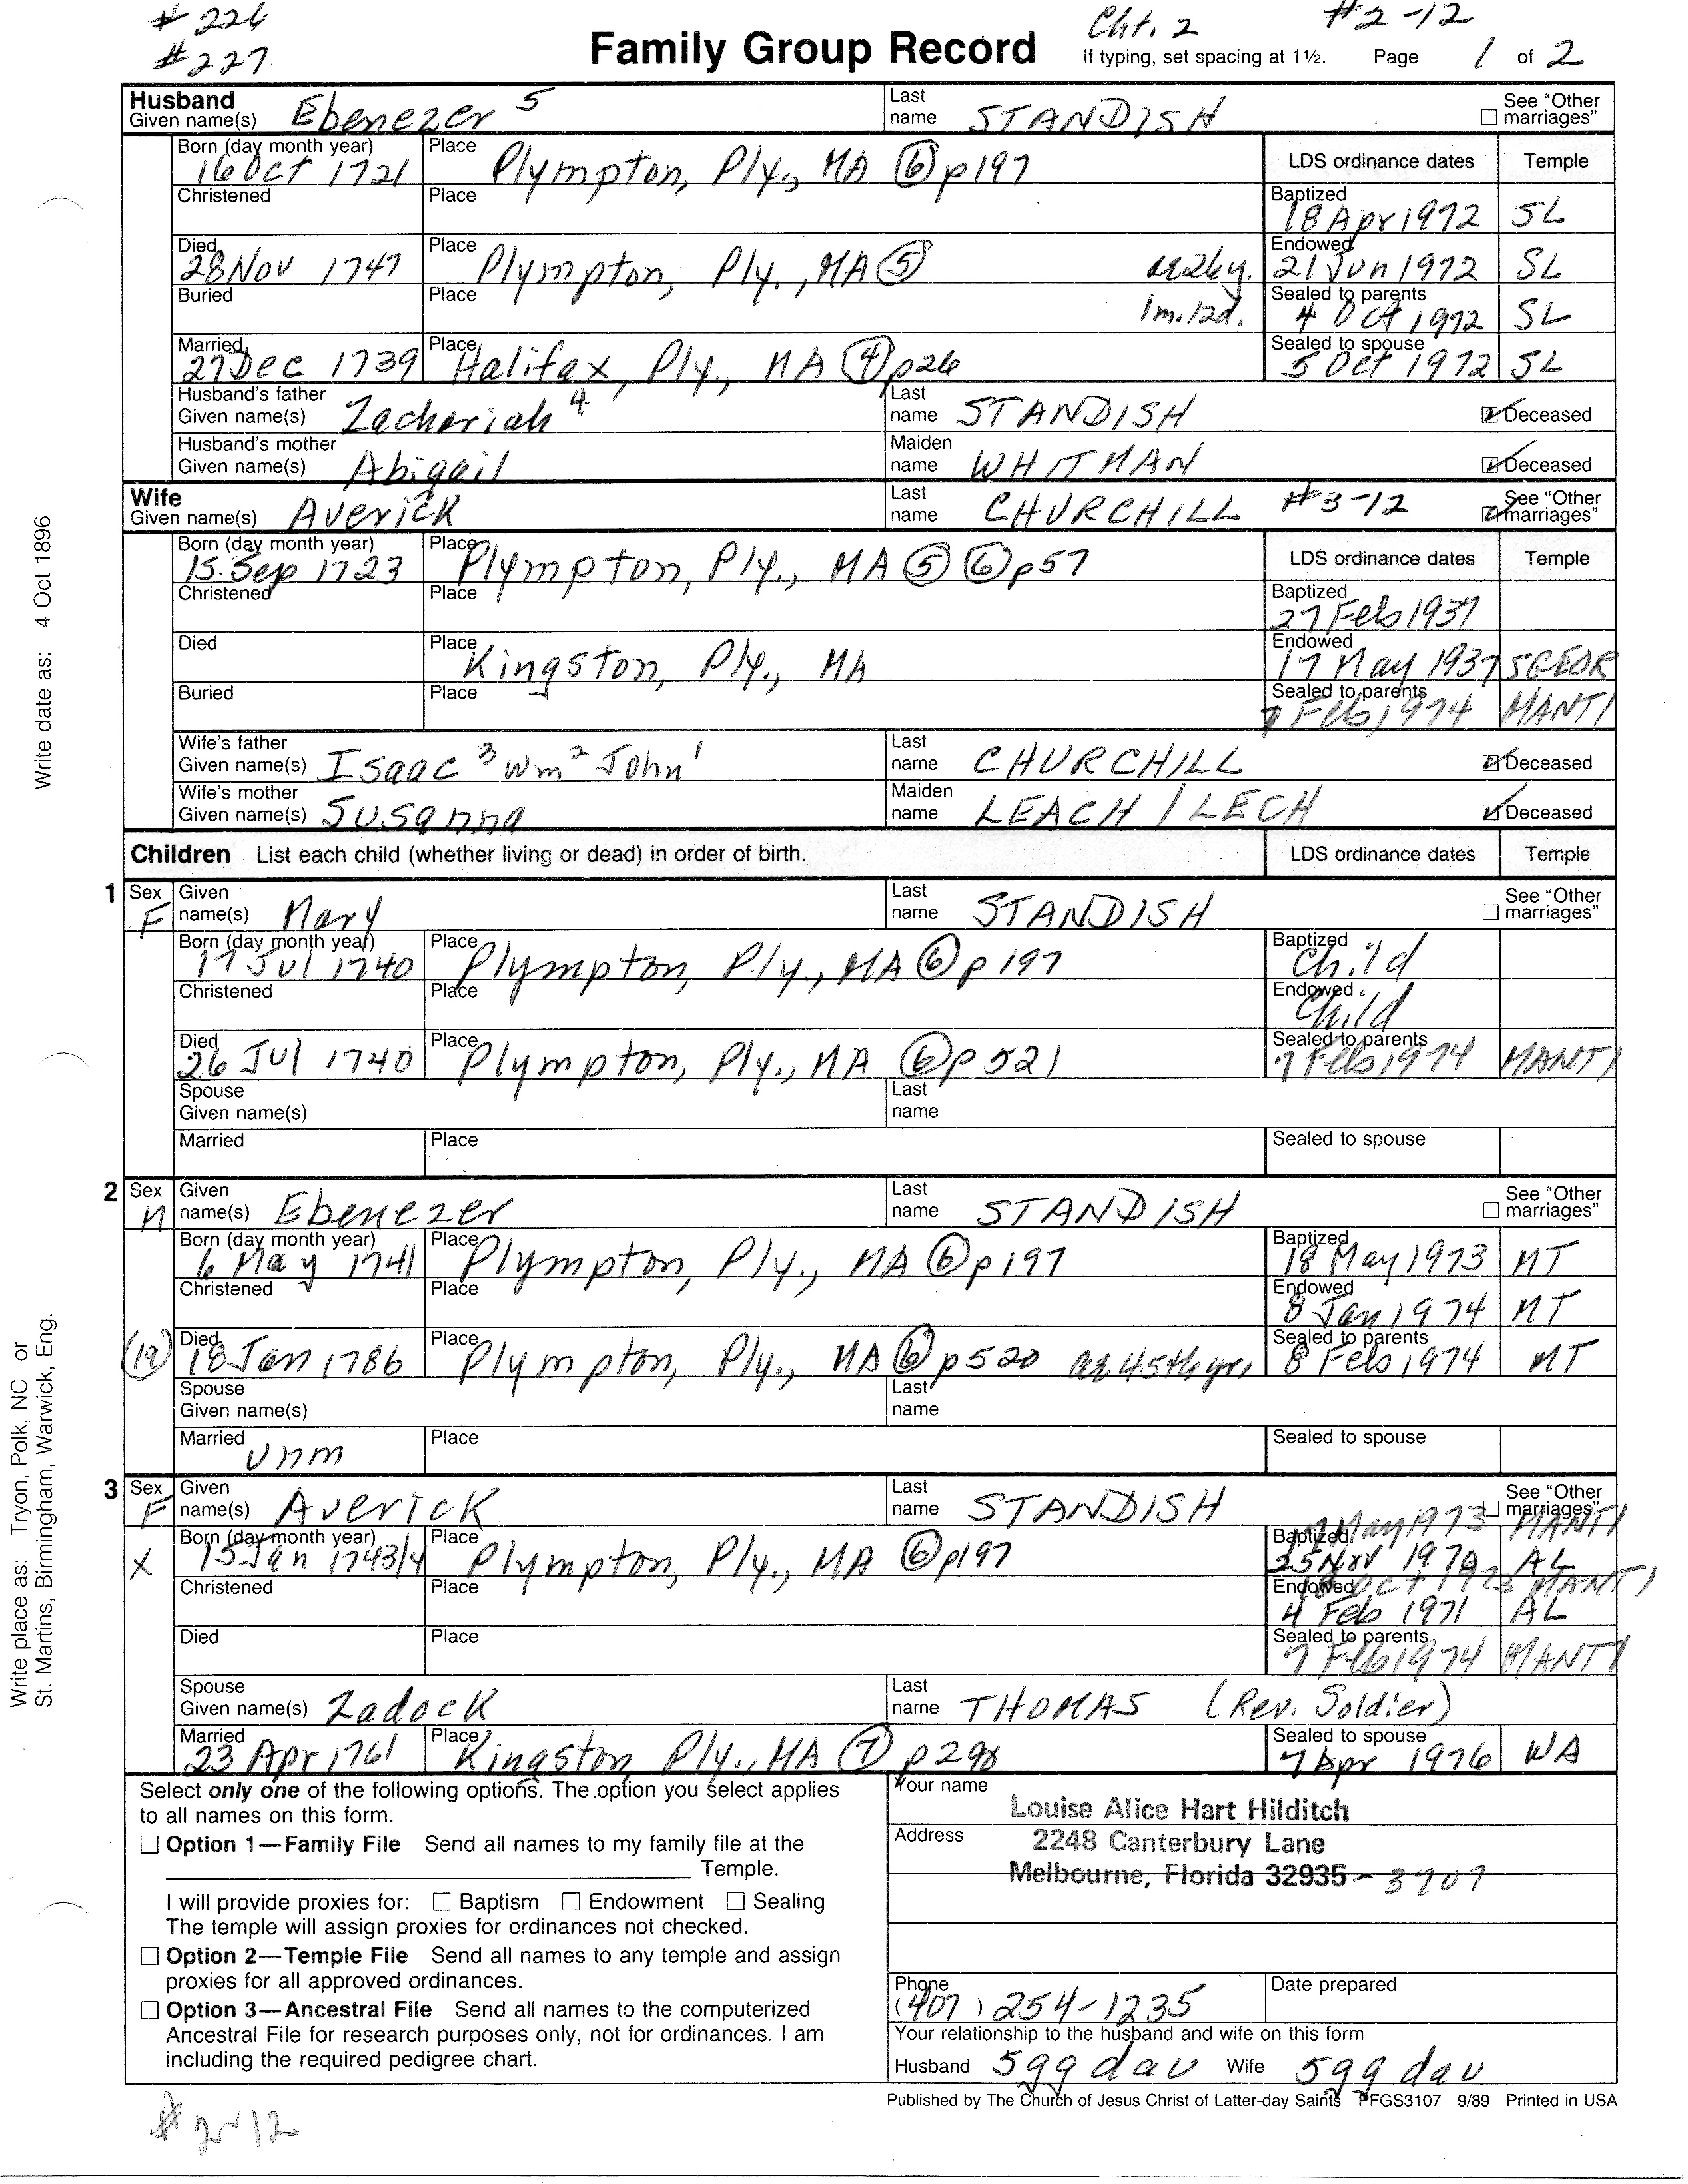 # 226 Cht. 2 #2-12
# 227 Family Group Record If typing, set spacing at 1½. Page 1 of 2
Husband
Given name(s) Ebenezer 5 Last name STANDISH ☐ See "Other marriages"
Born (day month year) 16 Oct 1721 Place Plympton, Ply., MA ⑥ p197 LDS ordinance dates Temple
Christened Place Baptized 18 Apr 1972 SL
Died 28 Nov 1747 Place Plympton, Ply., MA ⑤ ae 26y. Endowed 21 Jun 1972 SL
Buried Place 1m.12d. Sealed to parents 4 Oct 1972 SL
Married 27 Dec 1739 Place Halifax, Ply., MA ④ p26 Sealed to spouse 5 Oct 1972 SL
Husband's father Given name(s) Zachariah 4 Last name STANDISH ☑ Deceased
Husband's mother Given name(s) Abigail Maiden name WHITMAN ☑ Deceased
Wife
Given name(s) Averick Last name CHURCHILL #3-12 ☑ See "Other marriages"
Born (day month year) 15 Sep 1723 Place Plympton, Ply., MA ⑤ ⑥ p57 LDS ordinance dates Temple
Christened Place Baptized 27 Feb 1937
Died Place Kingston, Ply., MA Endowed 17 May 1937 SGEOR
Buried Place Sealed to parents 7 Feb 1974 MANTI
Wife's father Given name(s) Isaac 3 Wm 2 John 1 Last name CHURCHILL ☑ Deceased
Wife's mother Given name(s) Susanna Maiden name LEACH / LECH ☑ Deceased
Children List each child (whether living or dead) in order of birth. LDS ordinance dates Temple
1 Sex F Given name(s) Mary Last name STANDISH ☐ See "Other marriages"
Born (day month year) 17 Jul 1740 Place Plympton, Ply., MA ⑥ p197 Baptized Child
Christened Place Endowed Child
Died 26 Jul 1740 Place Plympton, Ply., MA ⑥ p521 Sealed to parents 7 Feb 1974 MANTI
Spouse Given name(s) Last name
Married Place Sealed to spouse
2 Sex M Given name(s) Ebenezer Last name STANDISH ☐ See "Other marriages"
Born (day month year) 6 May 1741 Place Plympton, Ply., MA ⑥ p197 Baptized 18 May 1973 MT
Christened Place Endowed 8 Jan 1974 MT
(12) Died 18 Jan 1786 Place Plympton, Ply., MA ⑥ p520 ae 45th yr. Sealed to parents 8 Feb 1974 MT
Spouse Given name(s) Last name
Married unm Place Sealed to spouse
3 Sex F Given name(s) Averick Last name STANDISH ☐ See "Other marriages"
May 1973 MANTI
X Born (day month year) 15 Jan 1743/4 Place Plympton, Ply., MA ⑥ p197 Baptized 25 Nov 1970 AL
Oct 1973 MANTI
Christened Place Endowed 4 Feb 1971 AL
Died Place Sealed to parents 7 Feb 1974 MANTI
Spouse Given name(s) Zadock Last name THOMAS (Rev. Soldier)
Married 23 Apr 1761 Place Kingston, Ply., MA ⑦ p298 Sealed to spouse 7 Apr 1976 WA
Select only one of the following options. The option you select applies
to all names on this form.
☐ Option 1—Family File Send all names to my family file at the
Temple.
I will provide proxies for: ☐ Baptism ☐ Endowment ☐ Sealing
The temple will assign proxies for ordinances not checked.
☐ Option 2—Temple File Send all names to any temple and assign
proxies for all approved ordinances.
☐ Option 3—Ancestral File Send all names to the computerized
Ancestral File for research purposes only, not for ordinances. I am
including the required pedigree chart.
Your name Louise Alice Hart Hilditch
Address 2248 Canterbury Lane
Melbourne, Florida 32935 - 3907
Phone (407) 254-1235 Date prepared
Your relationship to the husband and wife on this form
Husband 5gg dau Wife 5gg dau
Published by The Church of Jesus Christ of Latter-day Saints PFGS3107 9/89 Printed in USA
# 2-12
Write date as: 4 Oct 1896
Write place as: Tryon, Polk, NC or
St. Martins, Birmingham, Warwick, Eng.